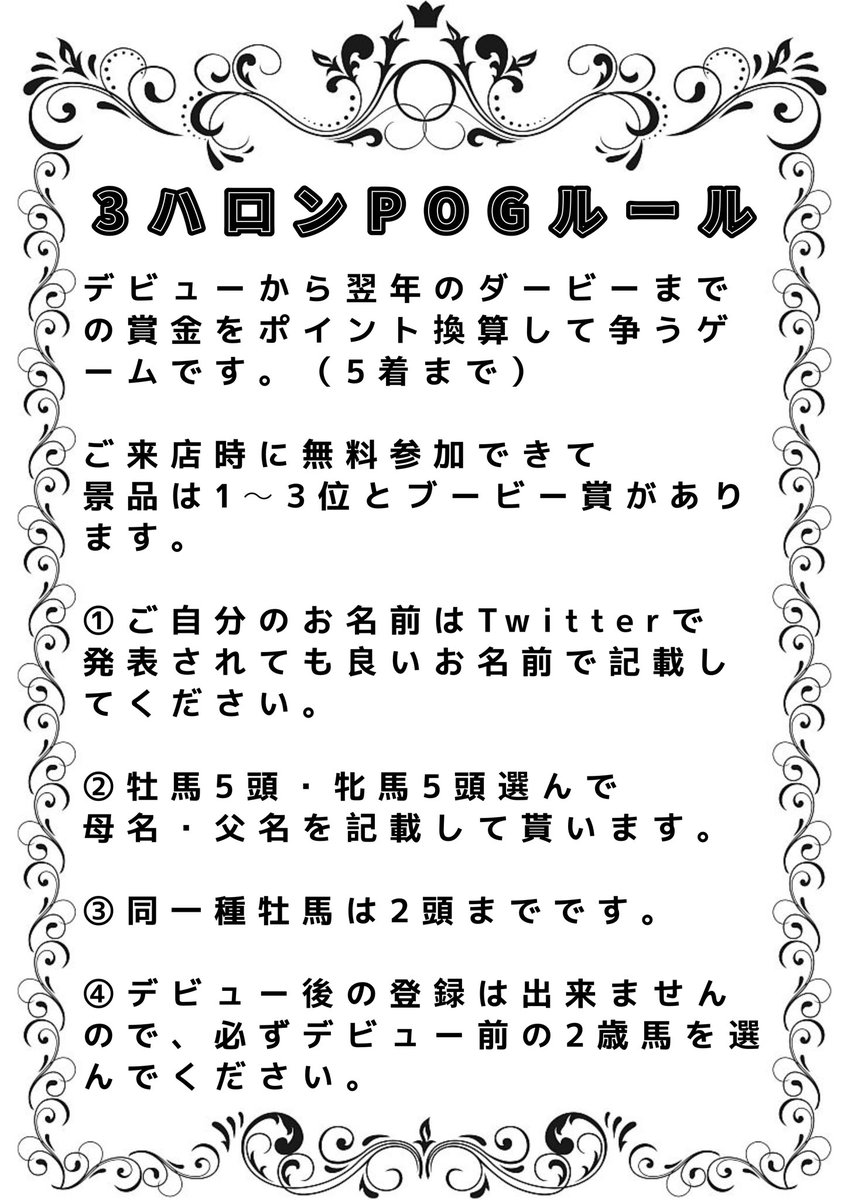 3ハロンPOGルール
デビューから翌年のダービーまで
の賞金をポイント換算して争うゲ
ームです。（5着まで）
ご来店時に無料参加できて
景品は1〜3位とブービー賞があり
ます。
①ご自分のお名前はTwitterで
発表されても良いお名前で記載し
てください。
②牡馬5頭・牝馬5頭選んで
母名・父名を記載して貰います。
③同一種牡馬は2頭までです。
④デビュー後の登録は出来ません
ので、必ずデビュー前の2歳馬を選
んでください。